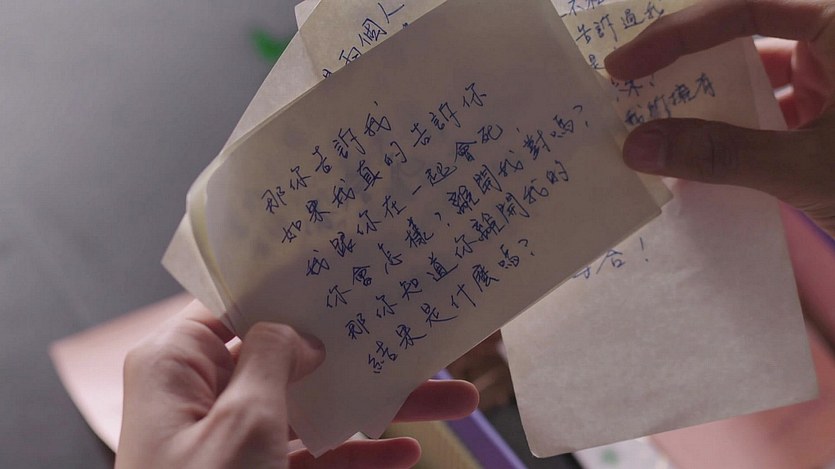 兩個人
那你告訴我
如果我真的告訴你
我跟你在一起會死，
你會怎樣？離開我，對嗎？
那你知道你離開我的
結果是什麼嗎？
告訴過我
是
我所擁有
合！